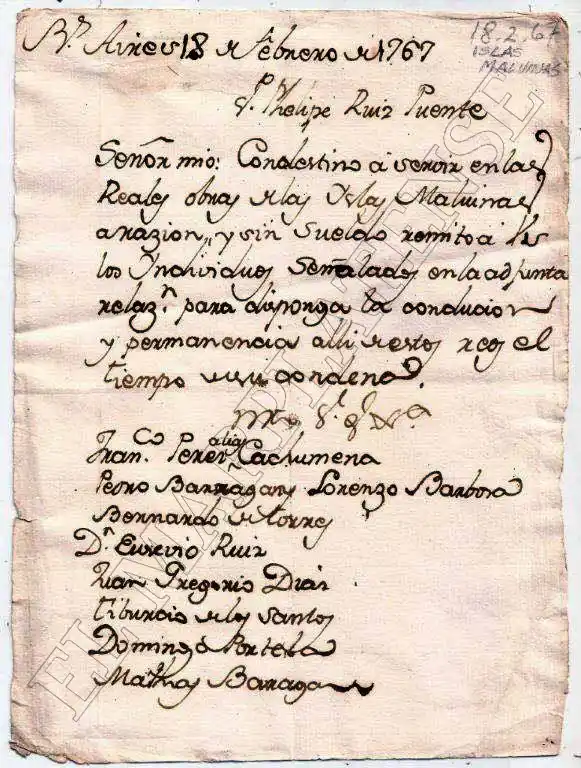 Bs. Aires 18 de Febrero de 1767
18.2.67
ISLAS
MALVINAS
Dn. Phelipe Ruiz Puente
Señor mio: Con destino á servir en las
Reales obras de las Yslas Malvinas
a razion, y sin sueldo remito á
los Yndividuos Señalados en la adjunta
relazn. para disponga la conducion
y permanencia alli de estos reos el
tiempo de su condena.
Franco. Perez alias Cachumena
Pedro Barragan Lorenzo Barbosa
Bernardo de torres
Dn. Eusevio Ruiz
Juan Gregorio Diaz
Tiburcio de los Santos
Domingo Portela
Mathias Barragan
EL MARPLATENSE